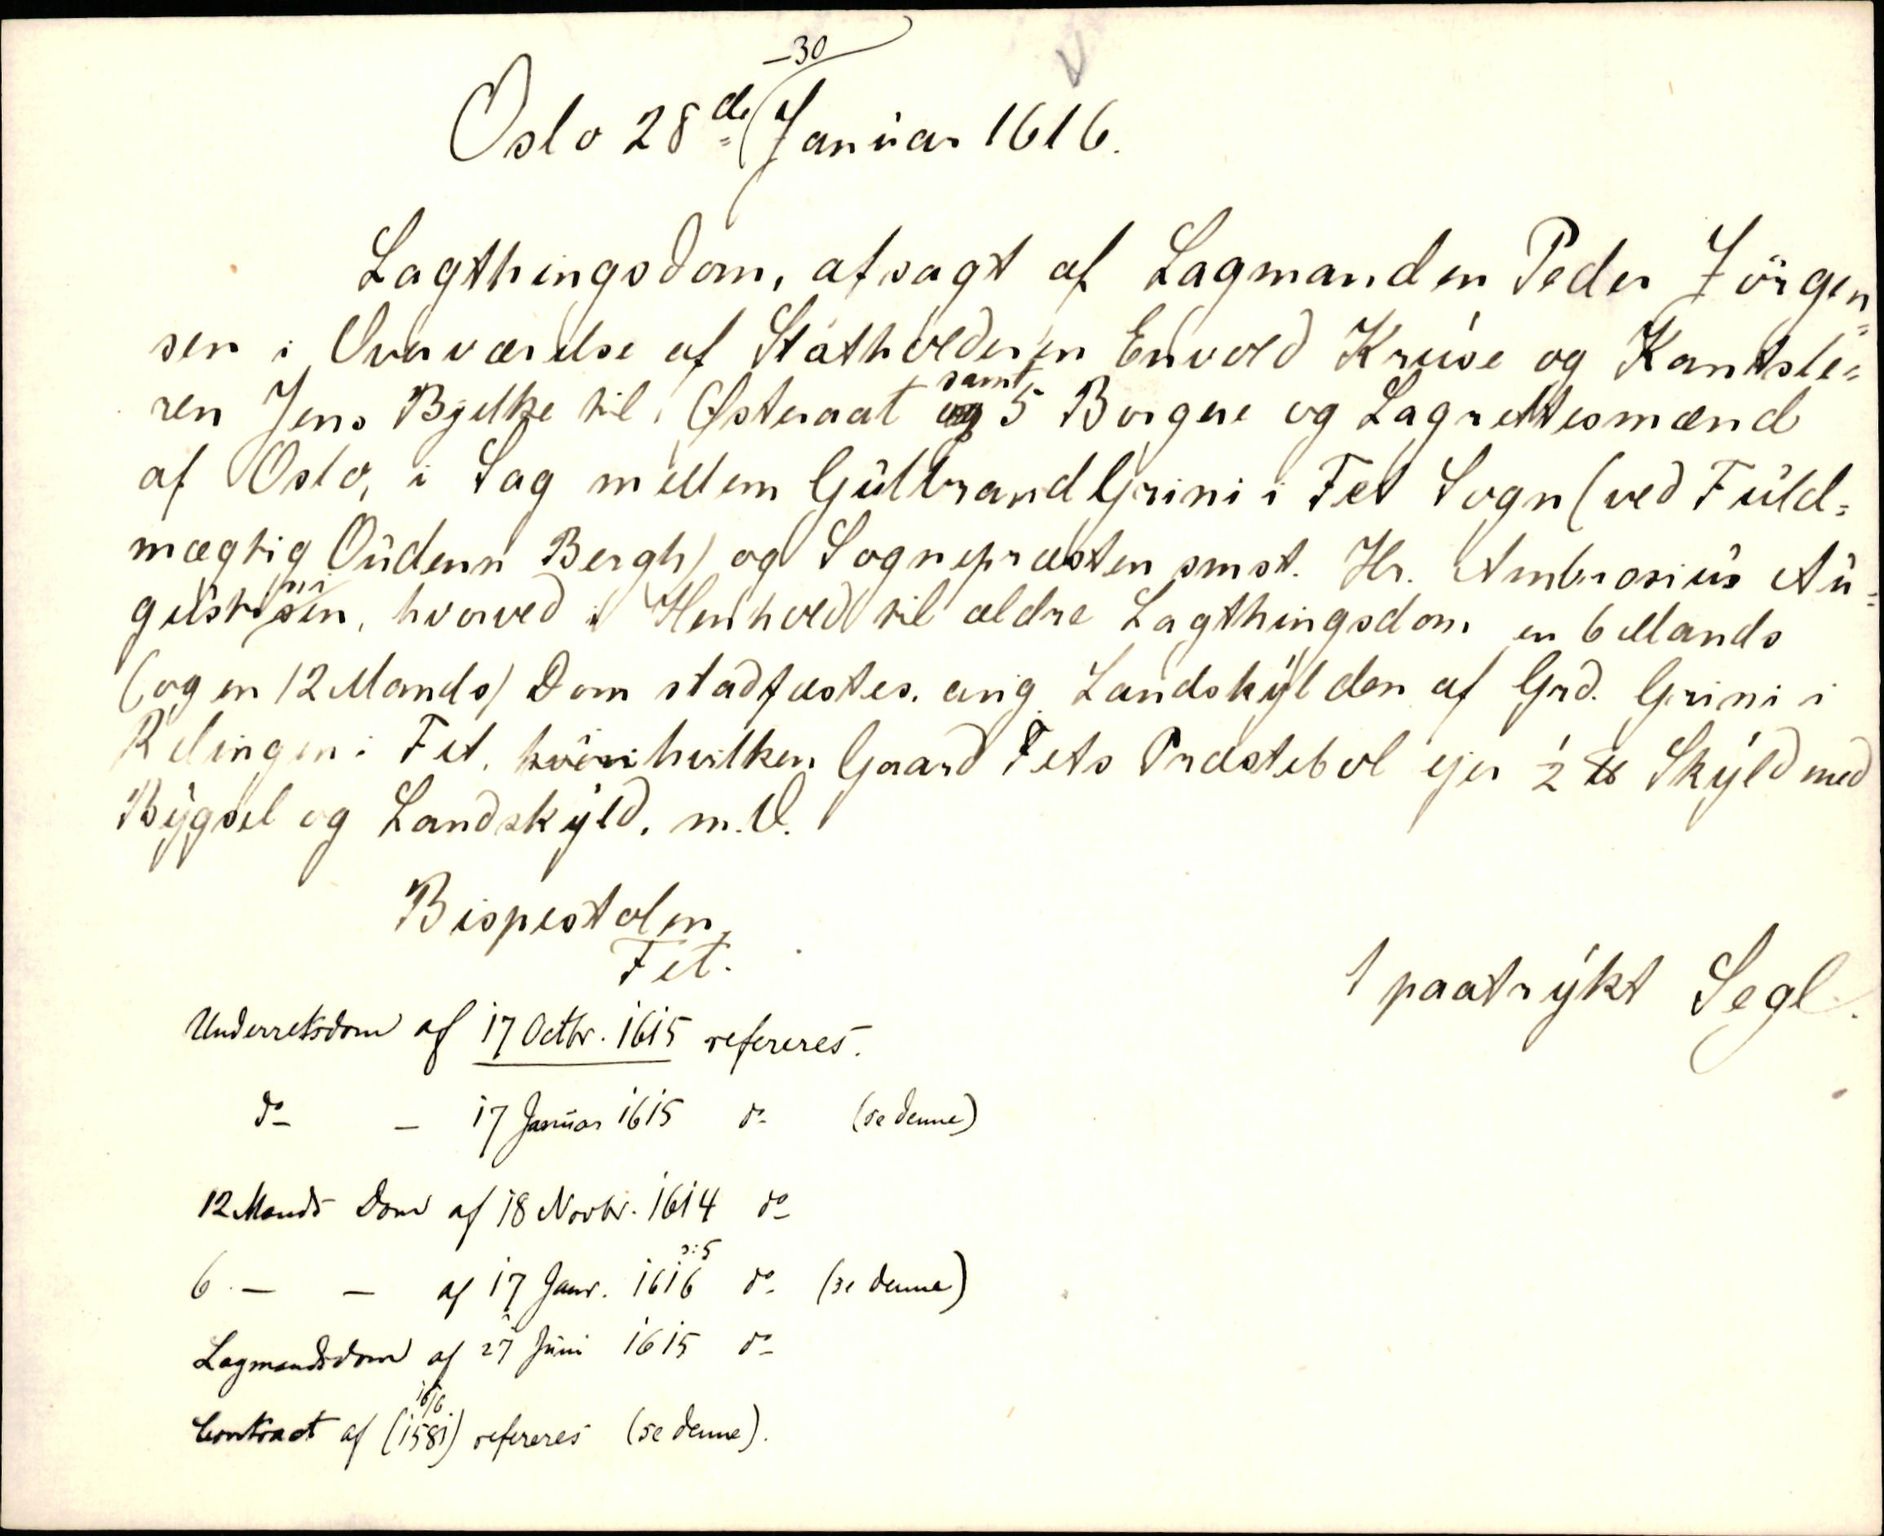 –30
Oslo 28de Januar 1616.
Lagthingsdom, afsagt af Lagmanden Peder Jörgen=
sen i Overværelse af Statholderen Envold Kruse og Kantsle=
ren Jens Bjelke til Østeraat samt 5 Borgere og Lagrettesmænd
af Oslo, i Sag mellem Gulbrand Grini i Fet Sogn (ved Fuld=
mægtig Oudenn Bergh) og Sognepræsten smst. Hr. Ambrosius Au=
gustini, hvorved i Henhold til ældre Lagthingsdom en 6 Mands
(og en 12 Mands) Dom stadfæstes, ang. Landskylden af Grd. Grini i
Relingen i Fet, i hvilken Gaard Fets Præstebol ejer ½ ℔ Skyld med
Bygsel og Landskyld. m.V.
Bispestolen,
Fet.
1 paatrykt Segl.
Underretsdom af 17 Octbr. 1615 refereres.
do – 17 Januar 1615 do (se denne)
12 Mands Dom af 18 Novbr. 1614 do
6 – – af 17 Janr. 1616 ɔ: 5 do (se denne)
Lagmandsdom af 27 Juni 1615 do
Contract af (1581) 1616 refereres (se denne).